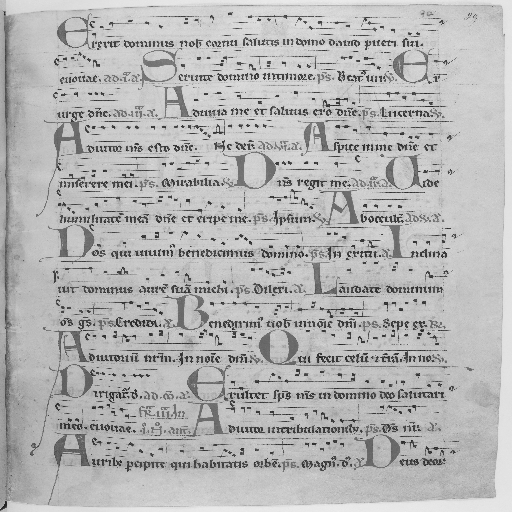 Erexit dominus nob cornu salutis in domo dauid pueri sui.
euouae. ad .i. a. Seruite domino in timore. ps. Beat' uir. Ex
urge dne. ad .iii. a. Adiuua me et saluus ero dne. ps. Lucerna.
Adiutor ms esto dne. Ne der. ad .vi. a. Aspice in me dne et
miserere mei. ps. Mirabilia. Dns regit me. ad a. Uide
humilitate mea dne et eripe me. ps. Ipsum. A uoce
Nos qui uiuim' benedicimus domino. ps. In exitu. a. Inclina
uit dominus aure sua michi. ps. Dilexi. a. Laudate dominum
os gs. ps. Credidi. a. Benediximus uob in noie dni. ps. Sepe ex
Adiutoriu nrm. In noie dni. Qui fecit celu et tra. In no
Dirigat. d. ad a. Exultet sps ms in domino deo salutari
meo. euouae. Adiutor in tribulationib. ps. Ds nr. a.
Auribz percipite qui habitatis orbe. ps. Magn' d. a. Deus deor